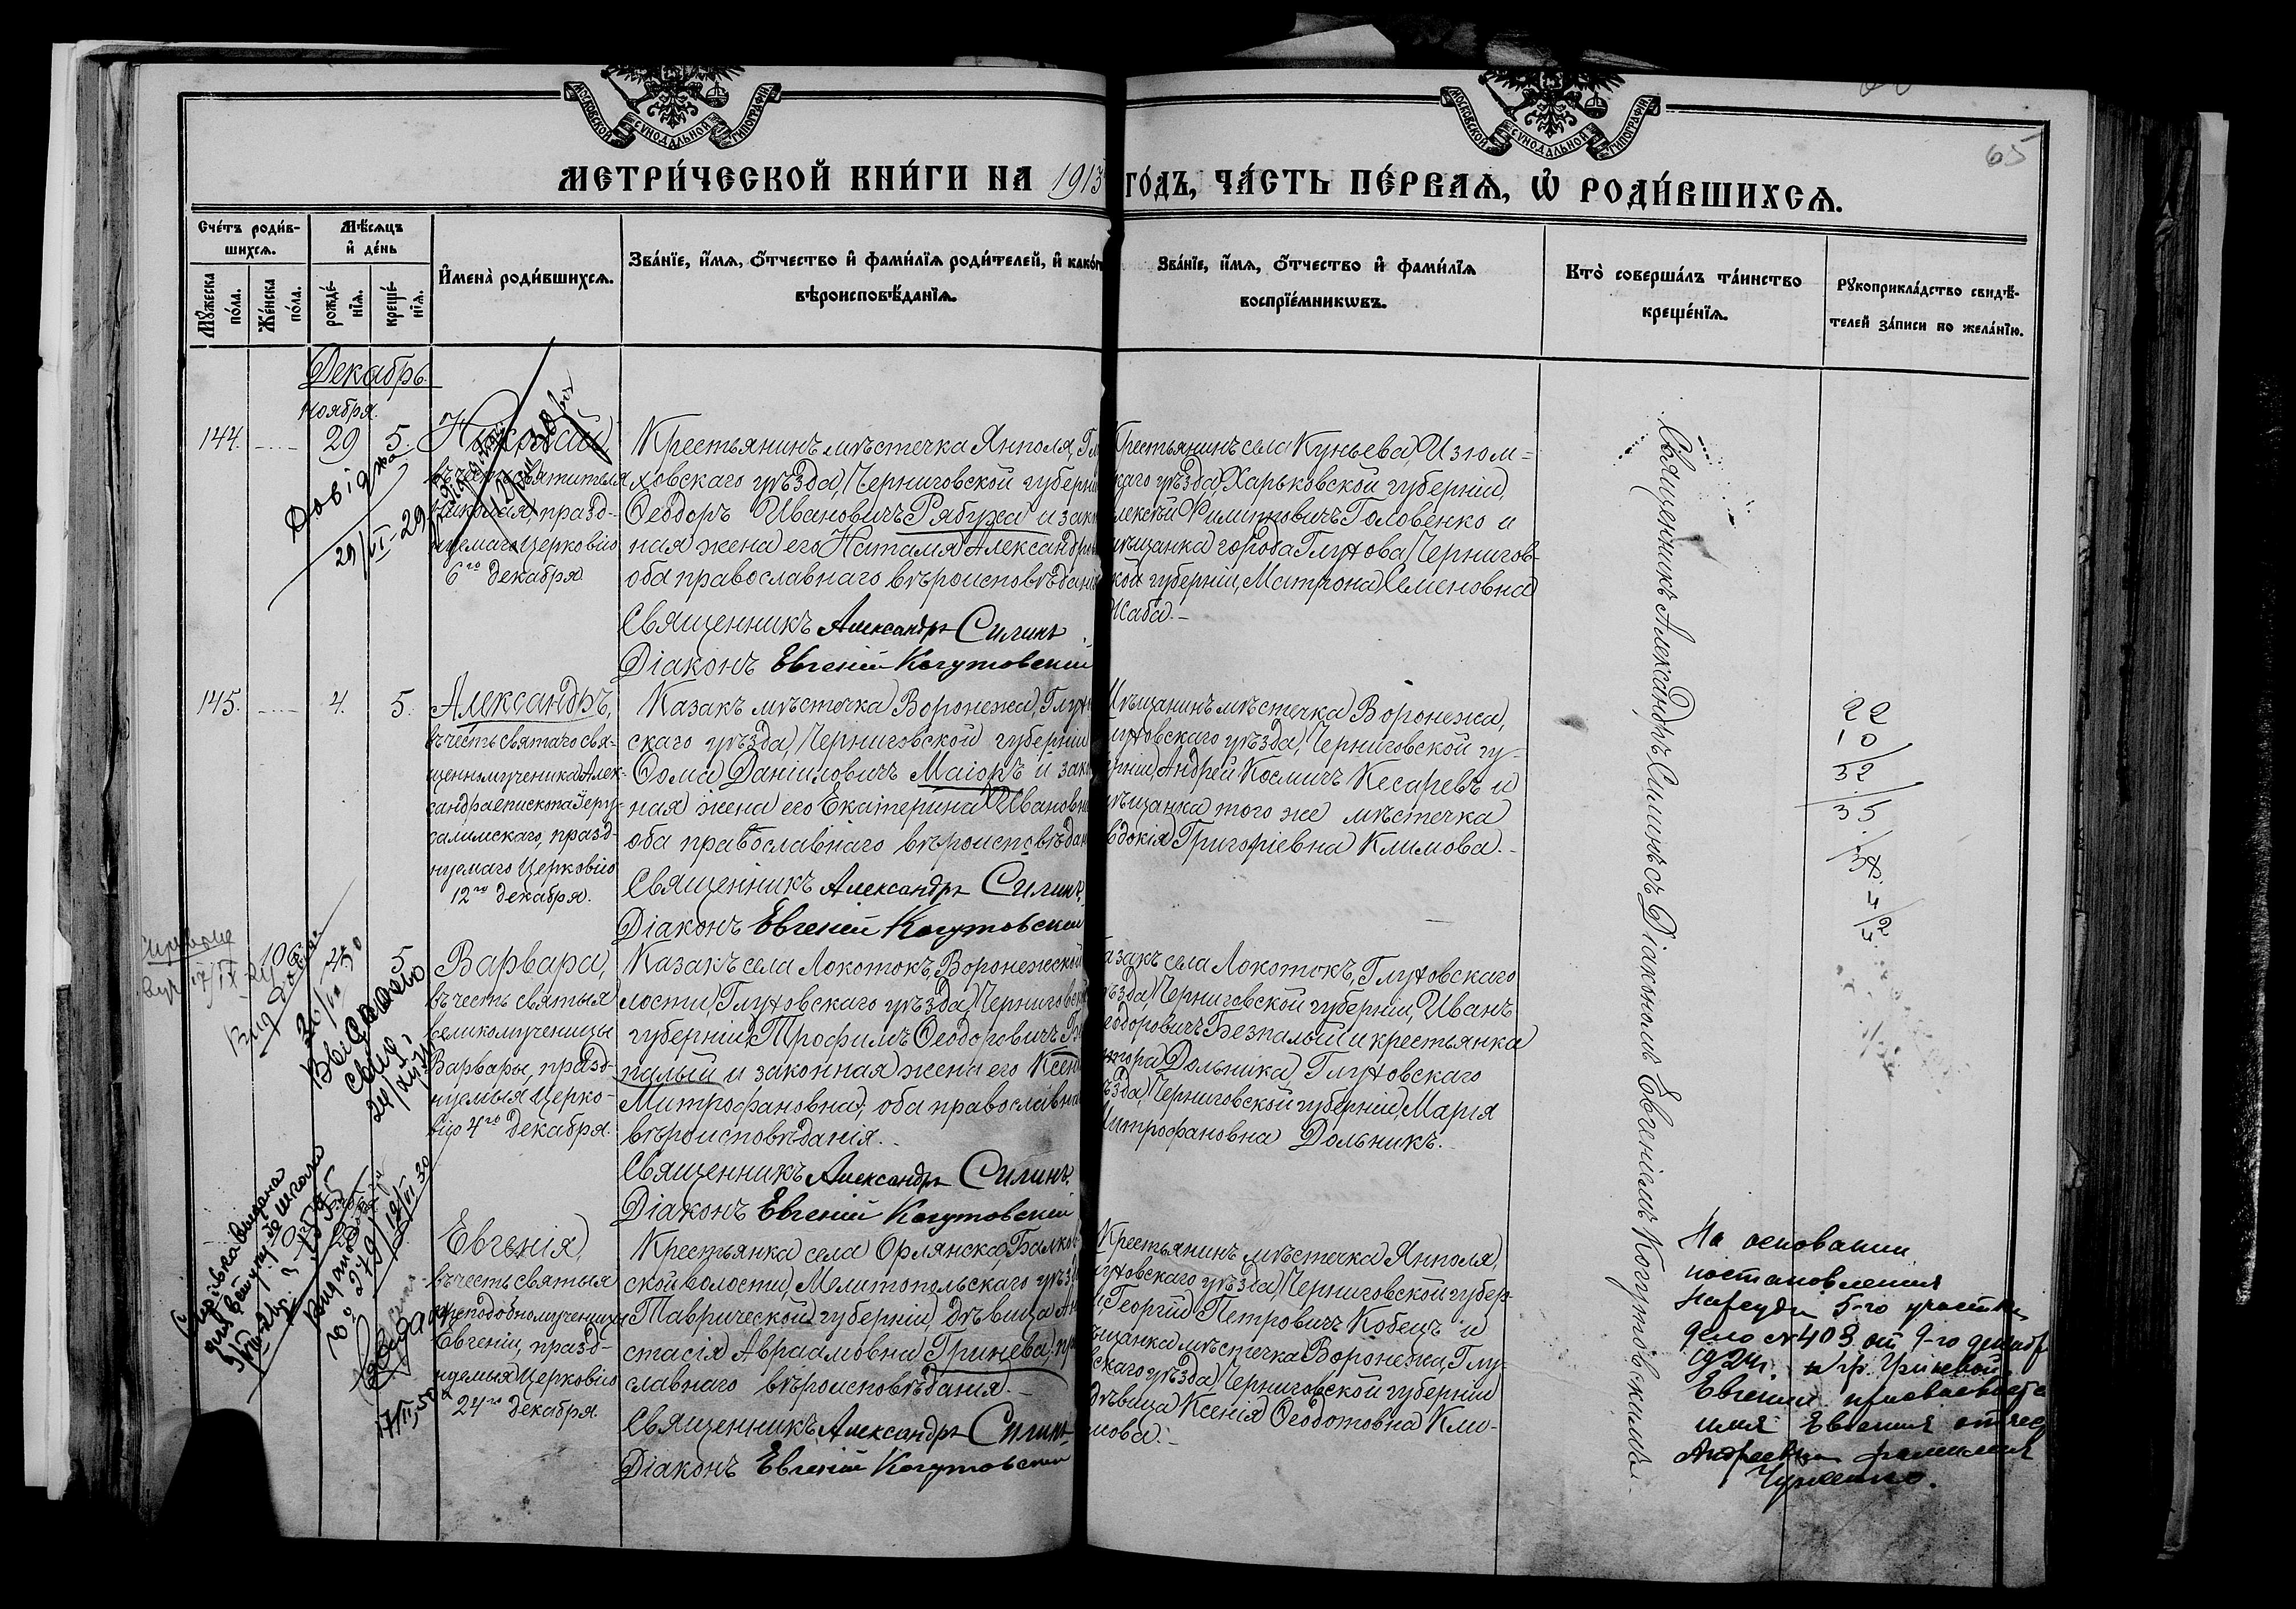 МОСКОВСКОЙ СѴНОДАЛЬНОЙ ТИПОГРАФІИ
МОСКОВСКОЙ СѴНОДАЛЬНОЙ ТИПОГРАФІИ
65
МЕТРИ́ЧЕСКОЙ КНИ́ГИ НА 1913 ГО́ДЪ, ЧА́СТЬ ПЕ́РВАѦ, Ѡ҆ РОДИ́ВШИХСѦ.
Сче́тъ роди́в-
шихсѧ.
Мꙋ́жеска по́ла.
Же́нска по́ла.
Мѣ́сѧцъ
и҆ де́нь
рожде́-
нїѧ.
креще́-
нїѧ.
И҆мена̀ роди́вшихсѧ.
Зва́нїе, и҆́мѧ, ѻ҆́тчество и҆ фами́лїѧ роди́телей, и҆ како́г
вѣроисповѣ́данїѧ.
Зва́нїе, и҆́мѧ, ѻ҆́тчество и҆ фами́лїѧ
воспрїе́мникѡвъ.
Кто̀ соверша́лъ та́инство
креще́нїѧ.
Рꙋкоприкла́дство свидѣ́-
телей за́писи по жела́нїю.
Декабрь.
ноября.
144.
29
5.
Николай,
въ честь святителя
Николая, празд-
нуемаго Церковію
6го декабря.
Крестьянинъ мѣстечка Янполя, Глу
ховскаго уѣзда, Черниговской губерніи
Ѳеодоръ Ивановичъ Рябуха и закон
ная жена его Наталія Александров
оба православнаго вѣроисповѣданія
Священникъ Александръ Силинъ
Діаконъ Евгеній Когутовскій
Крестьянинъ села Куньева, Изюм=
скаго уѣзда, Харьковской губерніи,
Алексѣй Филипповичъ Головенко и
мѣщанка города Глухова, Чернигов-
ской губерніи, Матрона Семеновна
Жаба.-
Довідка
29/VI-29
145.
4.
5.
Александръ,
въ честь святаго свя-
щенномученика Алек-
сандра епископа Іеру-
салимскаго, празд-
нуемаго Церковію
12го декабря.
Казакъ мѣстечка Воронежа, Глухов
скаго уѣзда, Черниговской губерніи
Ѳома Даниловичъ Маіоръ и закон
ная жена его Екатерина Ивановна
оба православнаго вѣроисповѣдан
Священникъ Александръ Силинъ.
Діаконъ Евгеній Когутовскій
Мѣщанинъ мѣстечка Воронежа,
Глуховскаго уѣзда, Черниговской гу-
берніи, Андрей Космичъ Кесаревъ и
мѣщанка того же мѣстечка
Евдокія Григоріевна Климова.-
22
10
32
35
38.
4
42
106
5
Варвара,
въ честь святыя
великомученицы
Варвары, празд-
нуемыя Церко-
вію 4го декабря.
Казакъ села Локотокъ, Воронежской
лости, Глуховскаго уѣзда, Черниговской
губерніи, Трофимъ Ѳеодоровичъ Без
палый и законная жена его Ксенія
Митрофановна, оба православна
вѣроисповѣданія.-
Священникъ Александръ Силинъ.
Діаконъ Евгеній Когутовскій
Казакъ села Локотокъ, Глуховскаго
уѣзда, Черниговской губерніи, Иванъ
Ѳеодоровичъ Безпалый и крестьянка
хутора Дольника, Глуховскаго
уѣзда, Черниговской губерніи, Марія
Митрофановна Дольникъ.-
Евгенія,
въ честь святыя
преподобномученицы
Евгеніи, празд-
нуемыя Церковію
24го декабря.
Крестьянка села Орлянска, Балков
ской волости, Мелитопольскаго уѣзда
Таврической губерніи, дѣвица Ана
стасія Авраамовна Гринева, пра
славнаго вѣроисповѣданія.-
Священникъ Александръ Силинъ
Діаконъ Евгеній Когутовскій
Крестьянинъ мѣстечка Янполя,
Глуховскаго уѣзда, Черниговской губер-
ніи Георгій Петровичъ Кобецъ и
мѣщанка мѣстечка Воронежа, Глу-
ховскаго уѣзда, Черниговской губерніи
дѣвица Ксенія Ѳеодотовна Кли-
мова.-
Священникъ Александръ Силинъ съ Діакономъ Евгеніемъ Когутовскимъ.-
На основании
постановления
Нарсуда 5-го участка
дело №409 от 9-го декабр
1924г. гр. Гриневой
Евгении присваивается
имя Евгения отчес
Андреевна фамилия